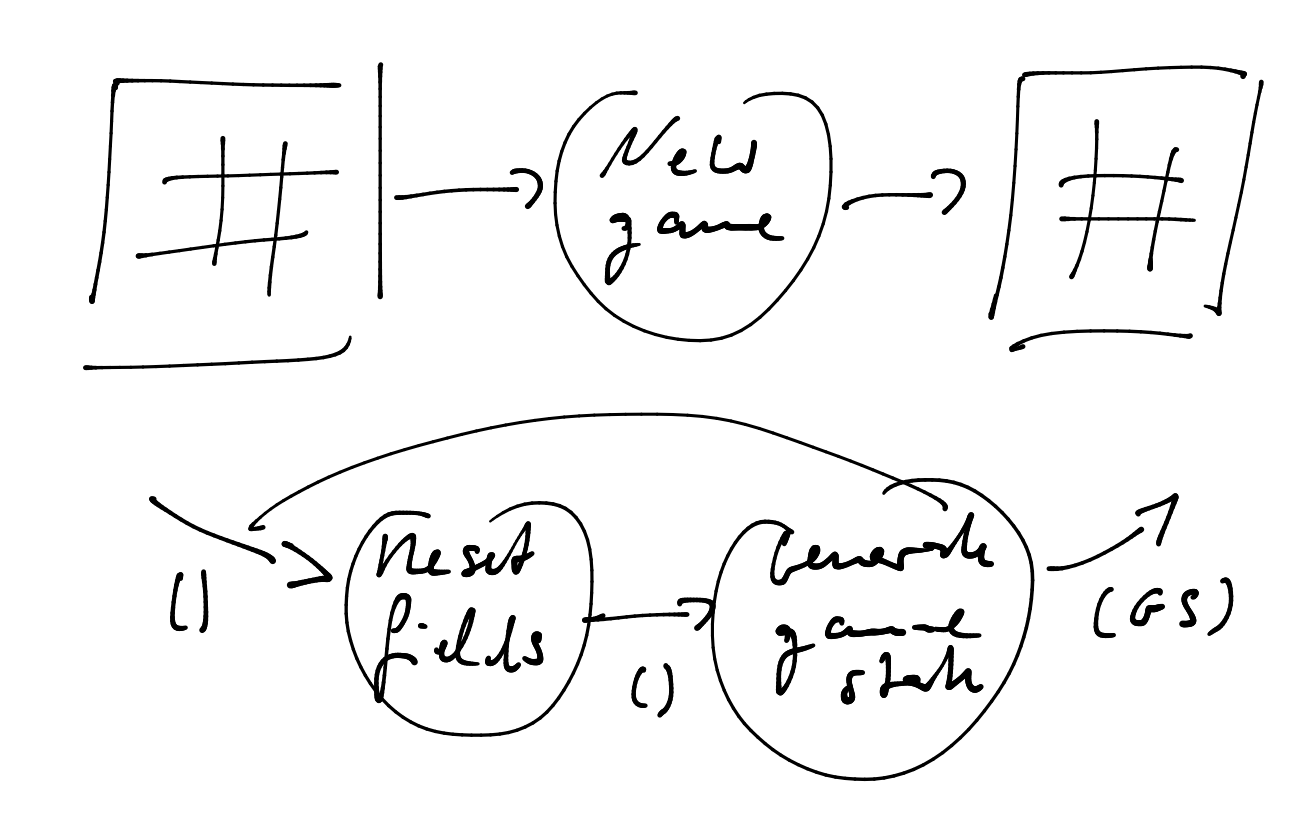 New
game
Reset
fields
()
()
Generate
game
state
(GS)